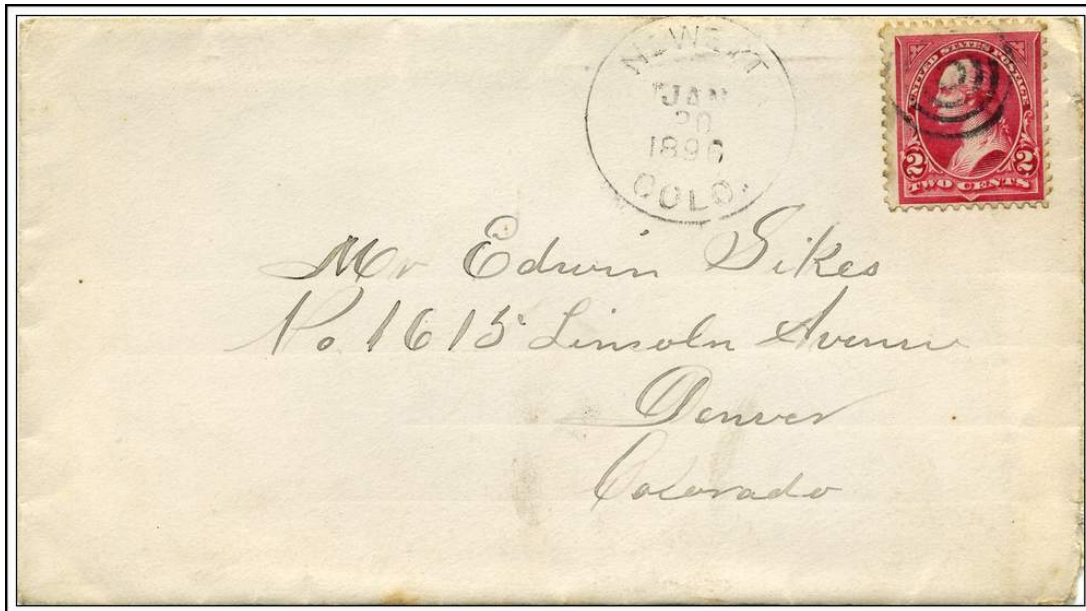 JAN
20
1896
COLO.
UNITED STATES POSTAGE
2 2
TWO CENTS
Mr Edwin Sikes
No. 1615 Lincoln Avenue
Denver
Colorado